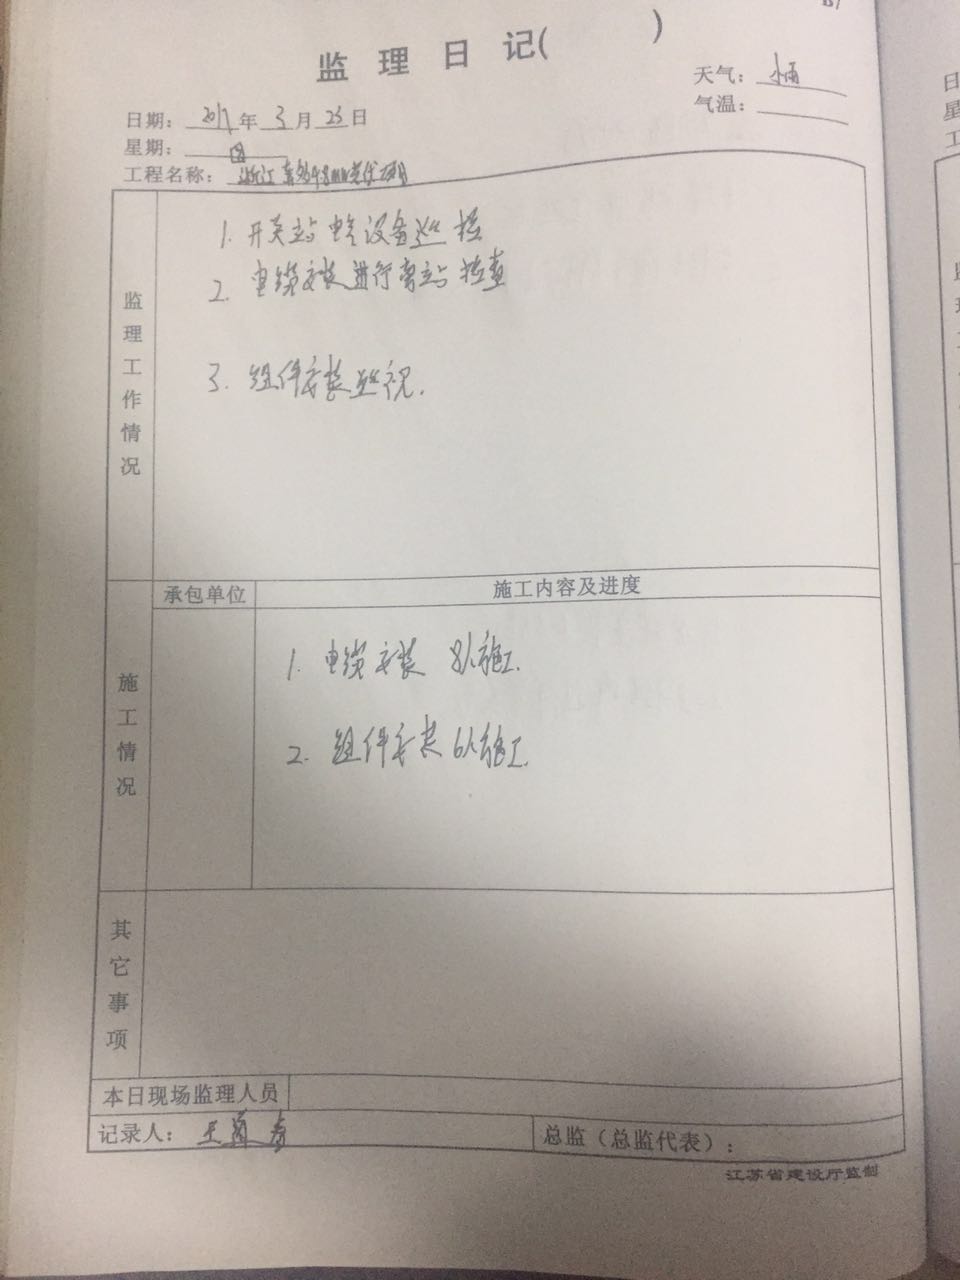 监理日记( )
天气: 小雨
气温:
日期: 2017年3月23日
星期: 四
工程名称: 浙江 48MW光伏项目
监理工作情况
1. 开关站电气设备巡检
2. 电缆安装进行旁站检查
3. 组件安装巡视.
承包单位 施工内容及进度
施工情况
1. 电缆安装 8人施工.
2. 组件安装 6人施工.
其它事项
本日现场监理人员
记录人: 王
总监(总监代表):
江苏省建设厅监制